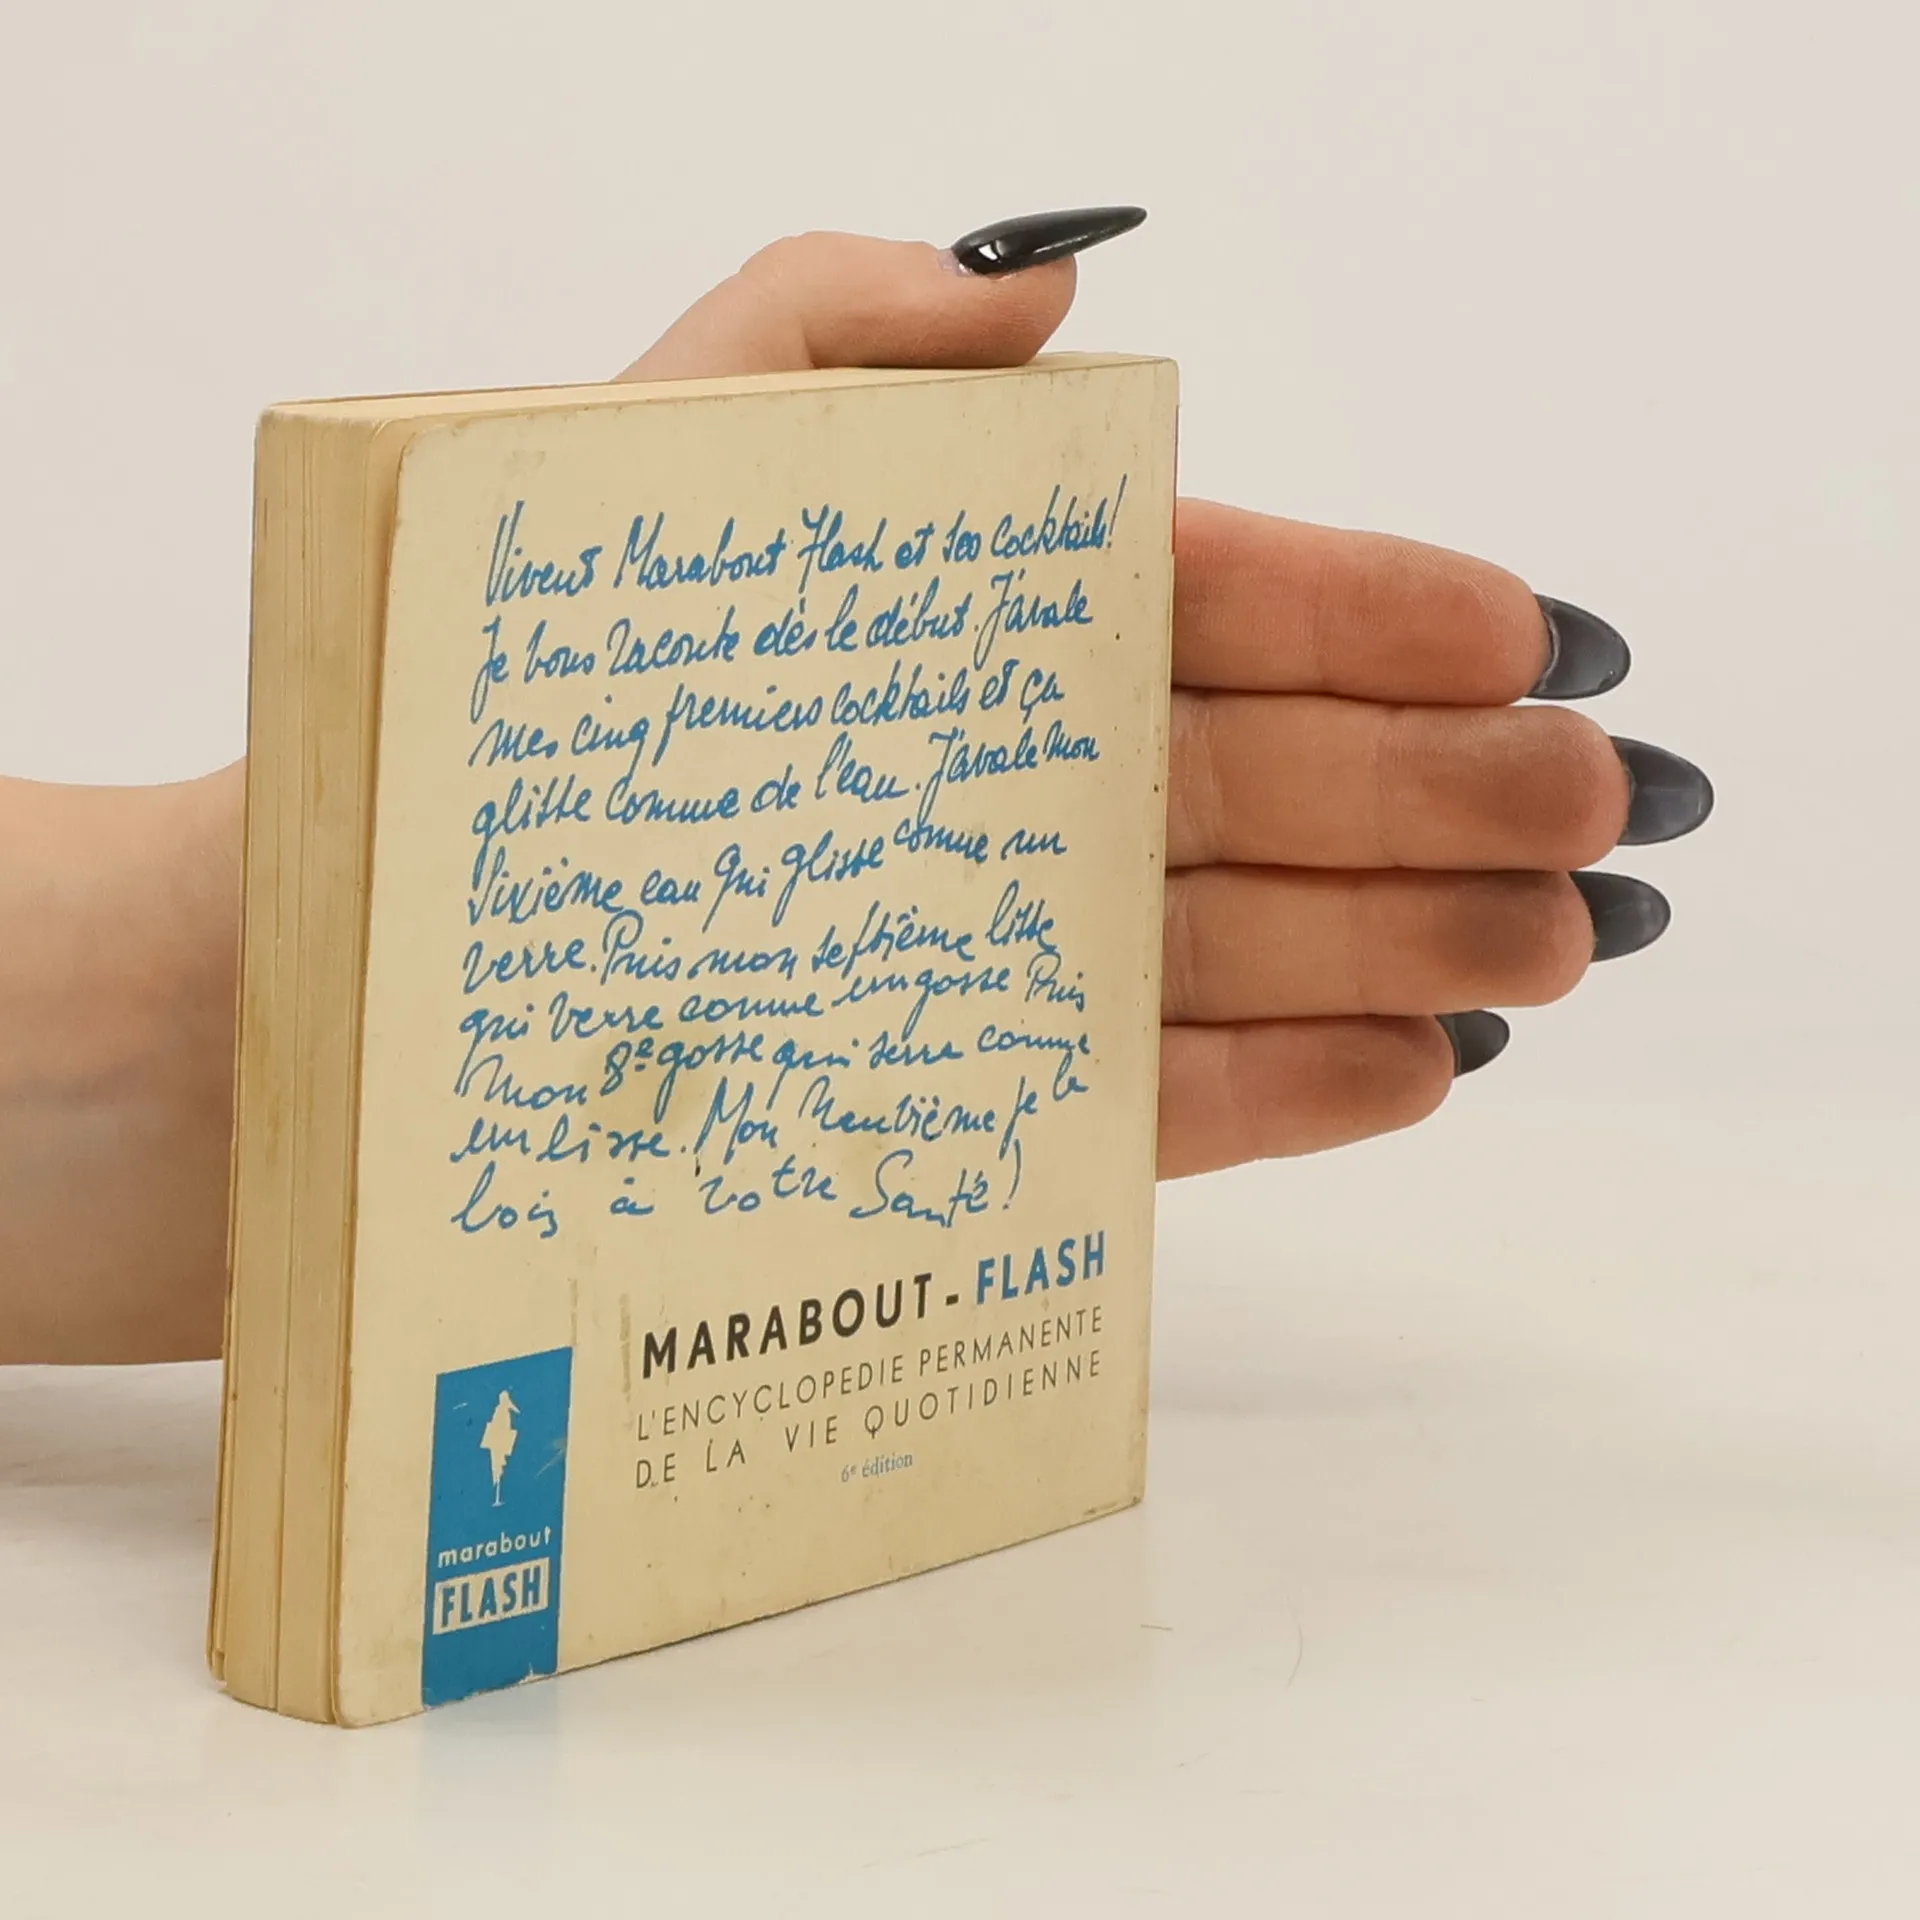 Vivent Marabout Flash et ses cocktails!
Je vous raconte dès le début. J'avale
mes cinq premiers cocktails et ça
glisse comme de l'eau. J'avale mon
sixième eau qui glisse comme un
verre. Puis mon septième lisse
qui verre comme un gosse Puis
Mon 8e gosse qui serre comme
un lisse. Mon neuvième je le
bois à votre Santé!
MARABOUT-FLASH
L'ENCYCLOPEDIE PERMANENTE
DE LA VIE QUOTIDIENNE
6e édition
marabout
FLASH